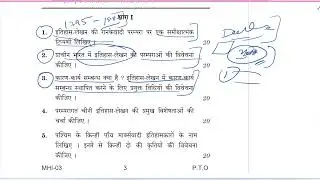 भाग I
1. इतिहास-लेखन की रानकेवादी परम्परा पर एक समीक्षात्मक
टिप्पणी लिखिए । 20
2. प्राचीन भारत में इतिहास-लेखन की परम्पराओं की विवेचना
कीजिए । 20
3. कारण-कार्य सम्बन्ध क्या है ? इतिहास-लेखन में कारण-कार्य
सम्बन्ध स्थापित करने के लिए प्रयुक्त विधियों की विवेचना
कीजिए । 20
4. परम्परागत चीनी इतिहास-लेखन की प्रमुख विशेषताओं की
चर्चा कीजिए । 20
5. पश्चिम के किन्हीं पाँच मार्क्सवादी इतिहासकारों के नाम
लिखिए । इनमें से किन्हीं दो की कृतियों की विवेचना
कीजिए । 20
MHI-03 3 P.T.O